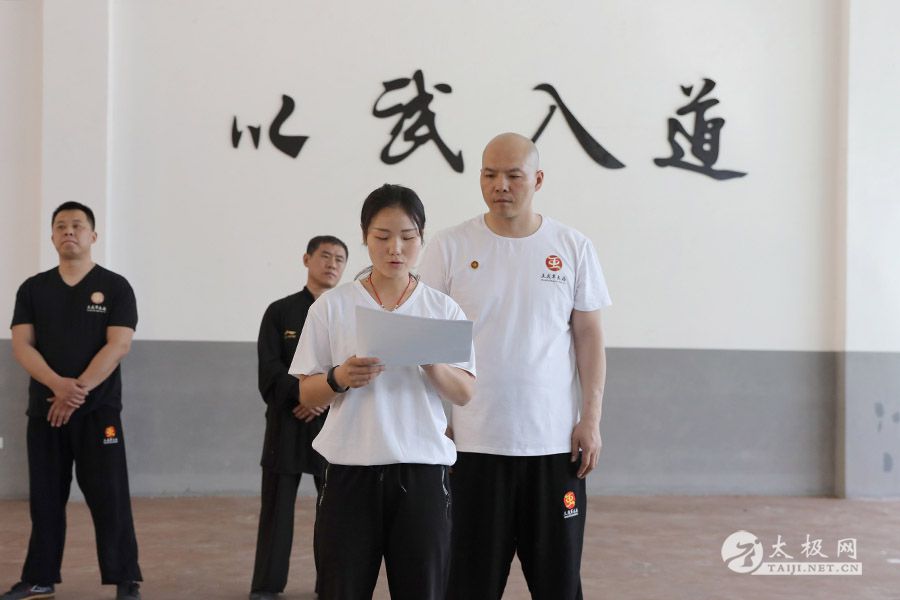 以武入道
太极网
TAIJI.NET.CN